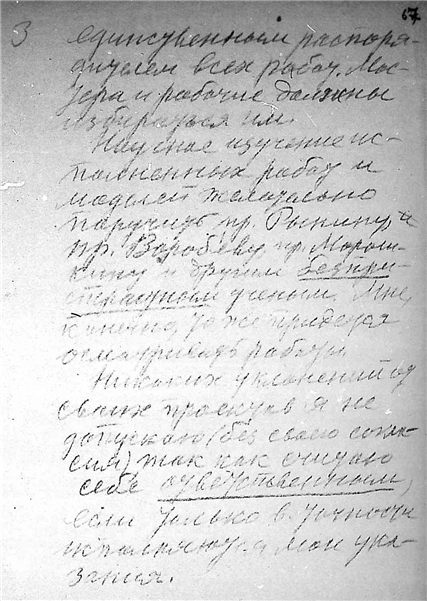 67
3
единственным распоря-
дителем всех работ. Мас-
тера и рабочие должны
избираться им.
Научное изучение ис-
полненных работ и
моделей желательно
поручить пр. Рынину, и
пр. Воробьеву, пр. Морош-
кину и другим беспри-
страстным ученым. Мне,
конечно, тоже придется
осматривать работы.
Никаких уклонений от
своих проектов я не
допускаю (без своего согла-
сия), так как считаю
себя ответственным,
если только в точности
исполняются мои ука-
зания.